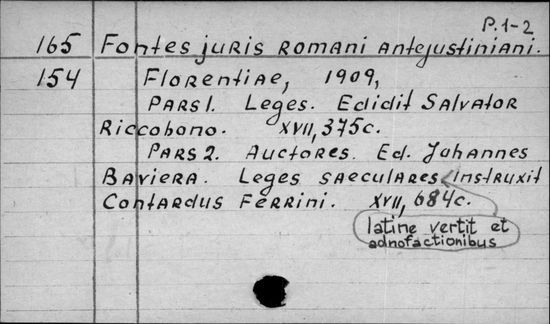 P. 1-2
165 Fontes juris Romani Antejustiniani.
154 Florentiae, 1909,
Pars 1. Leges. Edidit Salvator
Riccobono. XVII, 375c.
Pars 2. Auctores. Ed. Johannes
Baviera. Leges saeculares instruxit
Contardus Ferrini. XVII, 684c.
latine vertit et
adnofactionibus